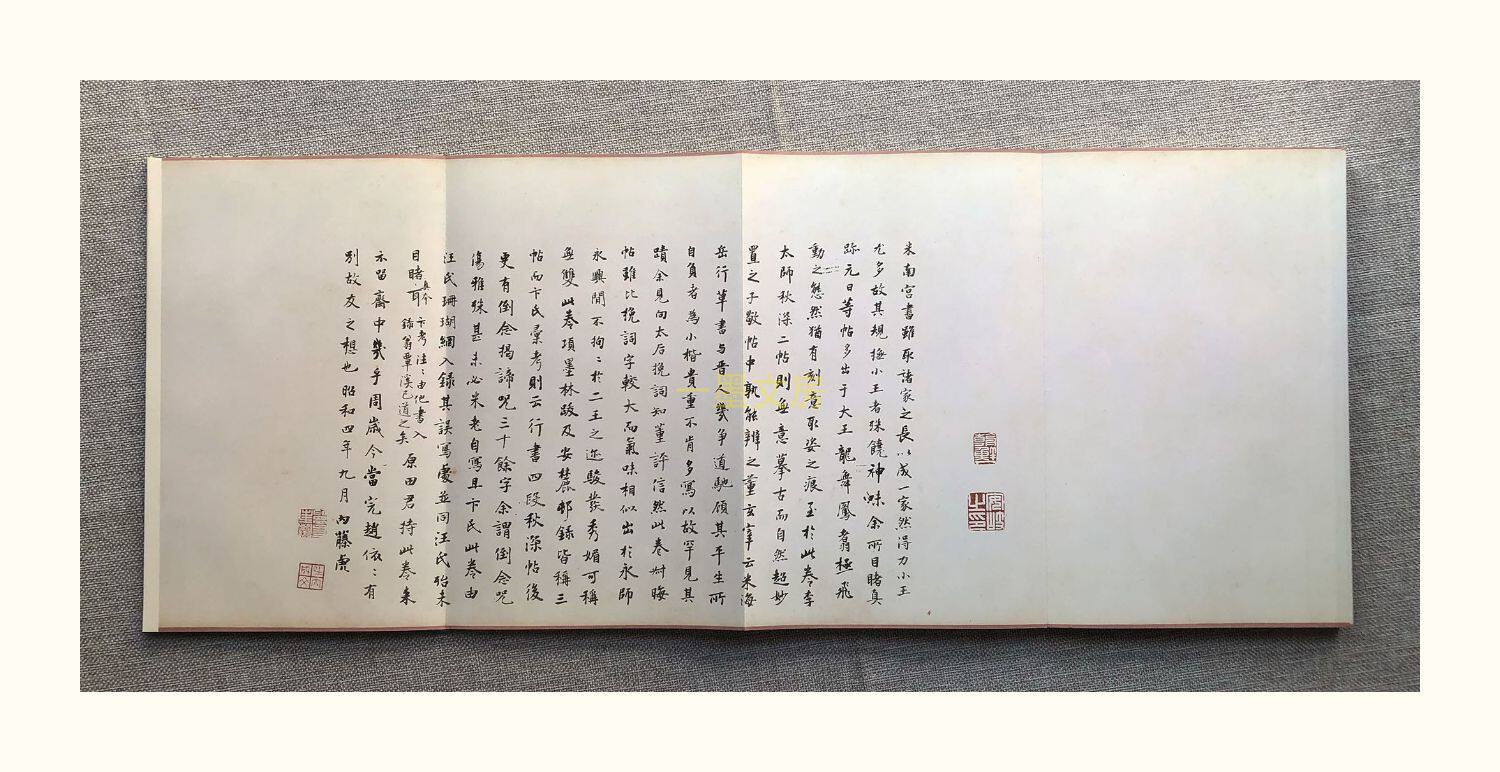 米南宮書雖取諸家之長以成一家然得力小王
尤多故其規橅小王者殊饒神味余所目睹真
跡元日等帖多出于大王龍舞鳳翥極飛
動之態然猶有刻意取姿之痕至於此卷李
太師秋深二帖則無意摹古而自然超妙
置之子敬帖中孰能辨之董玄宰云米海
岳行草書与晋人幾爭道馳頋其平生所
自負者為小楷貴重不肯多寫以故罕見其
蹟余見向太后挽詞知董評信然此卷
帖雖比挽詞字較大而氣味相似出於永師
永興間不拘〻於二王之迹駿發秀媚可稱
無雙此卷項墨林跋及安麓邨錄皆稱三
帖而卞氏彙考則云行書四段秋深帖後
更有倒念揭諦咒三十餘字余謂倒念咒
傷雅殊甚未必米老自寫且卞氏此卷由
汪氏珊瑚網入錄其誤寫處並同汪氏殆未
目睹真本耳 卞考注〻由他書入錄翁覃溪已道之矣 原田君持此卷来
示留齋中幾乎周歲今當完趙依〻有
別故友之想也 昭和四年九月 内藤虎
一墨文房